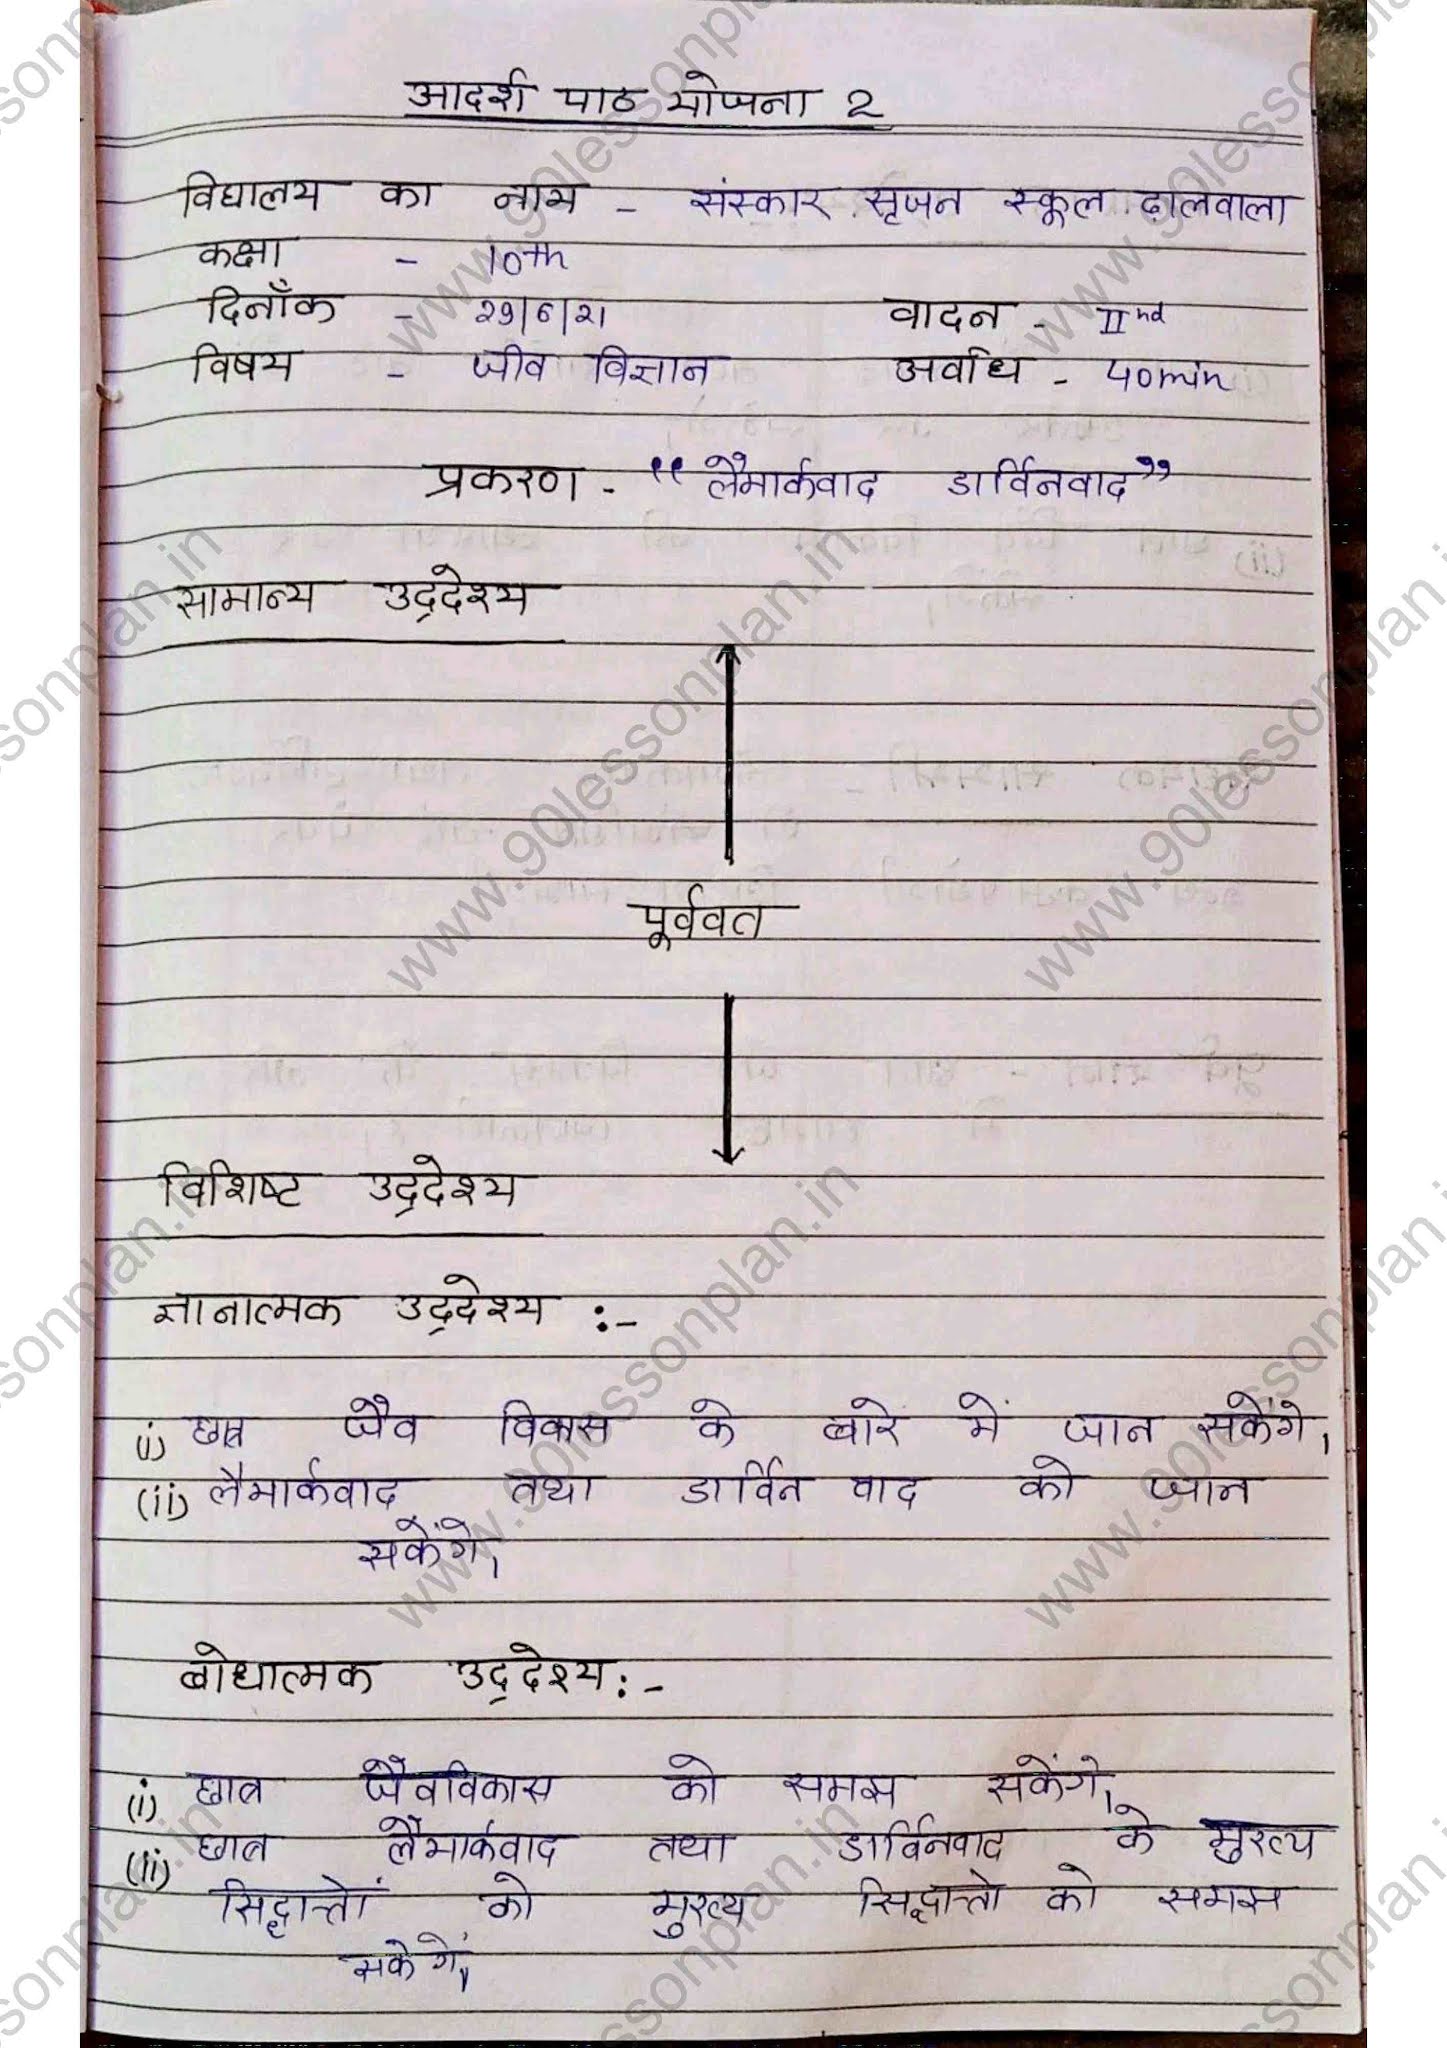 आदर्श पाठ योजना 2
विद्यालय का नाम - संस्कार सृजन स्कूल ढालवाला
कक्षा - 10th
दिनाँक - 29/6/21 वादन - IInd
विषय - जीव विज्ञान अवधि - 40min
प्रकरण - "लैमार्कवाद डार्विनवाद"
सामान्य उद्देश्य
पूर्ववत
विशिष्ट उद्देश्य
ज्ञानात्मक उद्देश्य :-
(i) छात्र जैव विकास के बारे में जान सकेंगे।
(ii) लैमार्कवाद तथा डार्विन वाद को जान
सकेंगे।
बोधात्मक उद्देश्य :-
(i) छात्र जैवविकास को समझ सकेंगे।
(ii) छात्र लैमार्कवाद तथा डार्विनवाद के मुख्य
सिद्धान्तों को मुख्य सिद्धान्तो को समझ
सकेगें।
www.90lessonplan.in